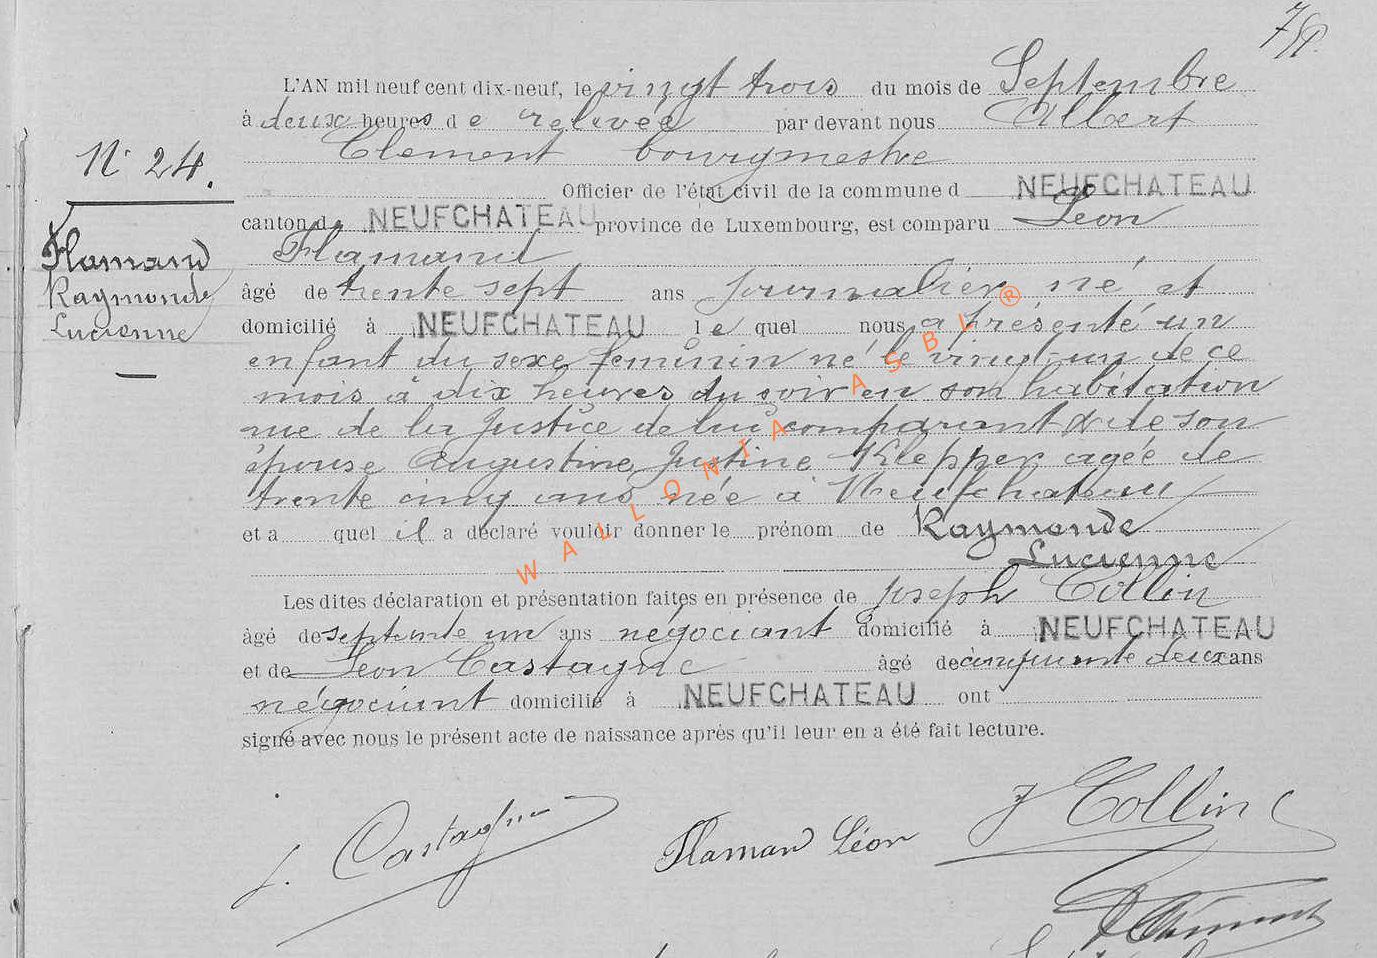 L'AN mil neuf cent dix-neuf, le vingt trois du mois de Septembre
à deux heures de relevée par devant nous Albert
Clement bourgmestre
N° 24.
Officier de l'état civil de la commune d NEUFCHATEAU
canton de NEUFCHATEAU province de Luxembourg, est comparu Léon
Flamand
Flamand
Raymonde
Lucienne
âgé de trente sept ans journalier né et
domicilié à NEUFCHATEAU le quel nous a présenté un
enfant du sexe féminin né le vingt-un de ce
mois à dix heures du soir en son habitation
rue de la Justice de lui comparant & de son
épouse Augustine Justine Klepper agée de
trente cinq ans née à Neufchateau
et a quel il a déclaré vouloir donner le prénom de Raymonde
Lucienne
Les dites déclaration et présentation faites en présence de Joseph Collin
âgé de septante un ans négociant domicilié à NEUFCHATEAU
et de Léon Castagne âgé de cinquante deux ans
négociant domicilié à NEUFCHATEAU ont
signé avec nous le présent acte de naissance après qu'il leur en a été fait lecture.
L. Castagne
Flamand Léon
J Collin
AClément
WALLONIA ASBL ®